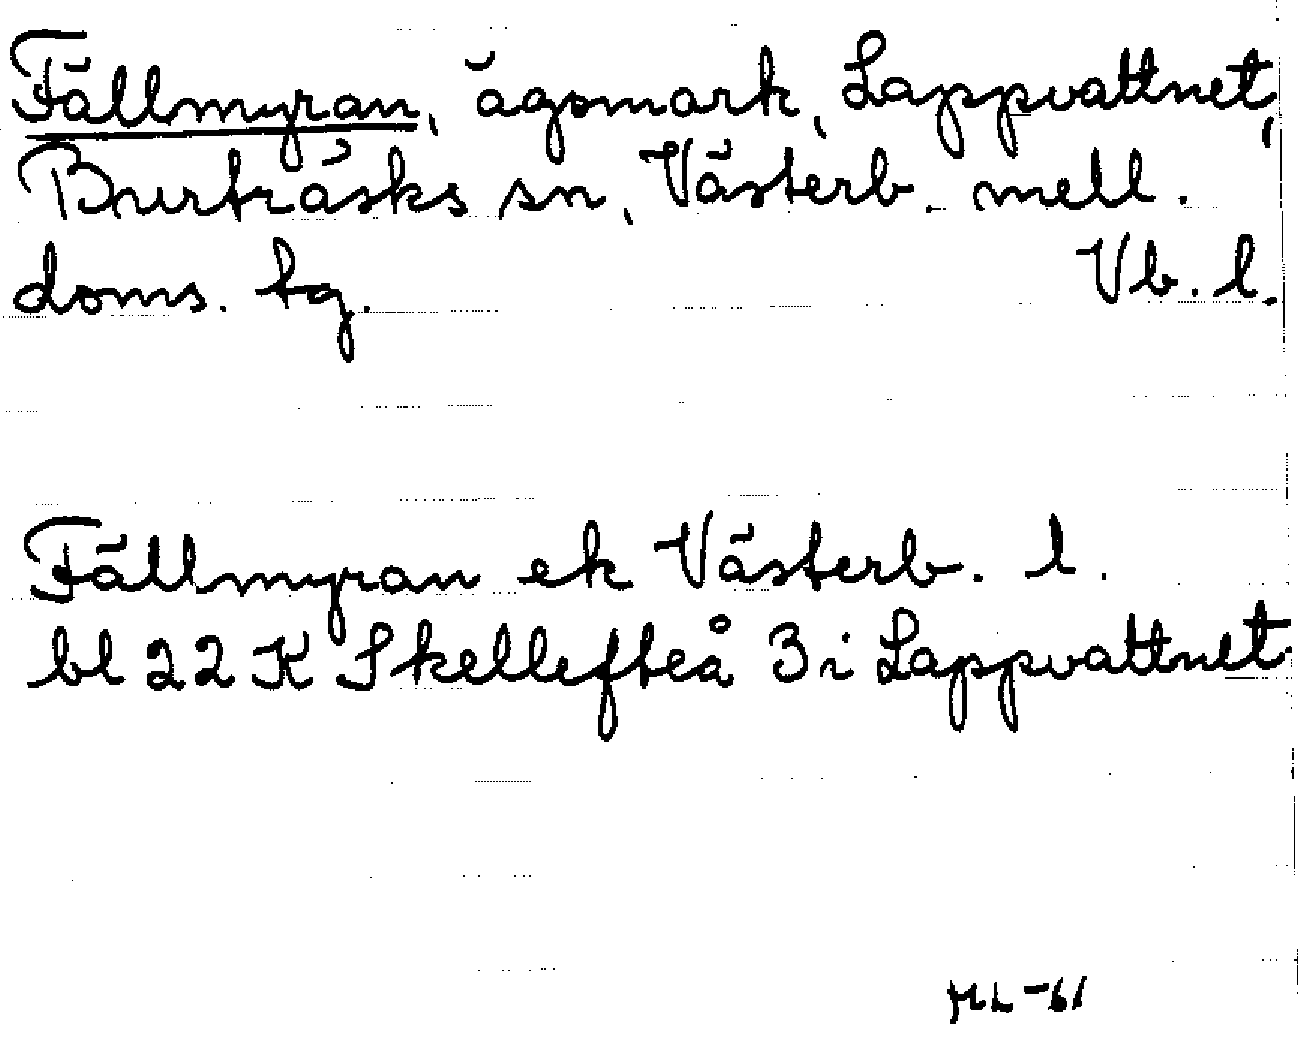 Fällmyran, ägomark, Lappvattnet,
Burträsks sn, Västerb. mell.
doms. tg. Vb. l.
Fällmyran ek Västerb. l.
bl 22 K Skellefteå 3 i Lappvattnet
ML-61